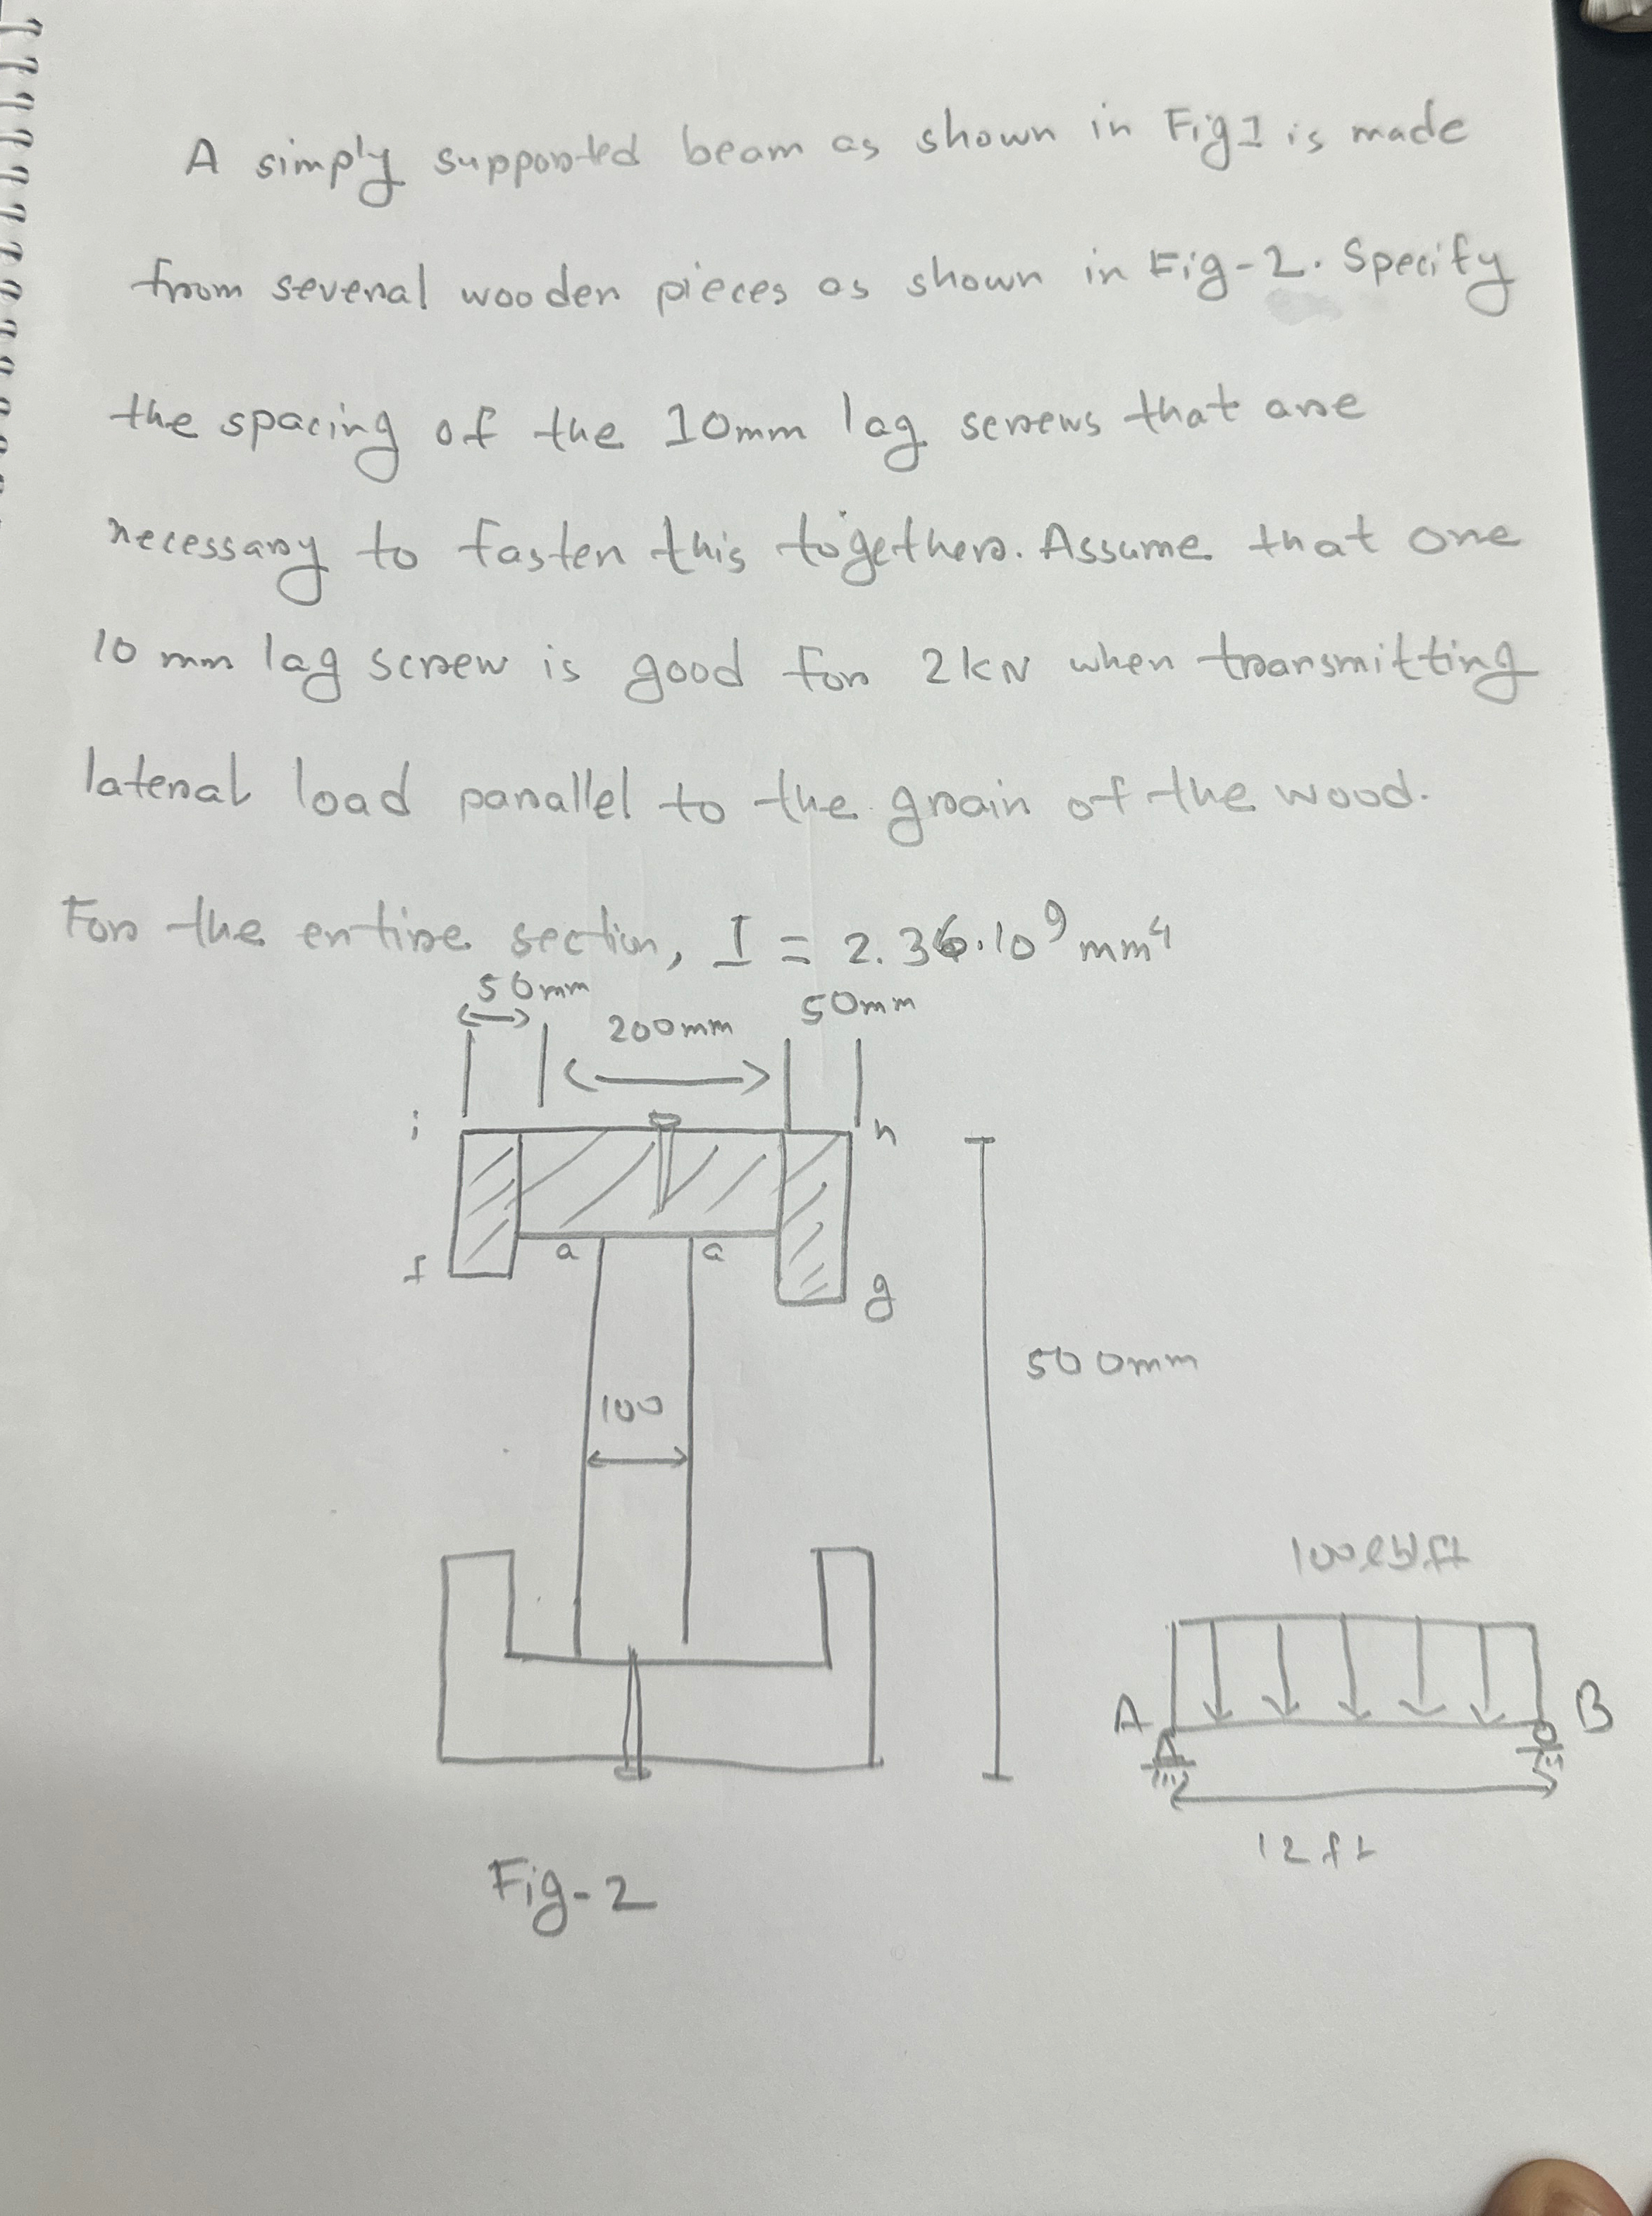 A simply supported beam as shown in Fig 1 is made
from several wooden pieces as shown in Fig-2. Specify
the spacing of the 10mm lag screws that are
necessary to fasten this together. Assume that one
10 mm lag screw is good for 2kN when transmitting
lateral load parallel to the grain of the wood.
For the entire section, I = 2.36.10⁹ mm⁴
50mm
200mm
50mm
i
h
a
a
f
g
500mm
100
100 lb/ft
A
B
12 ft
Fig-2